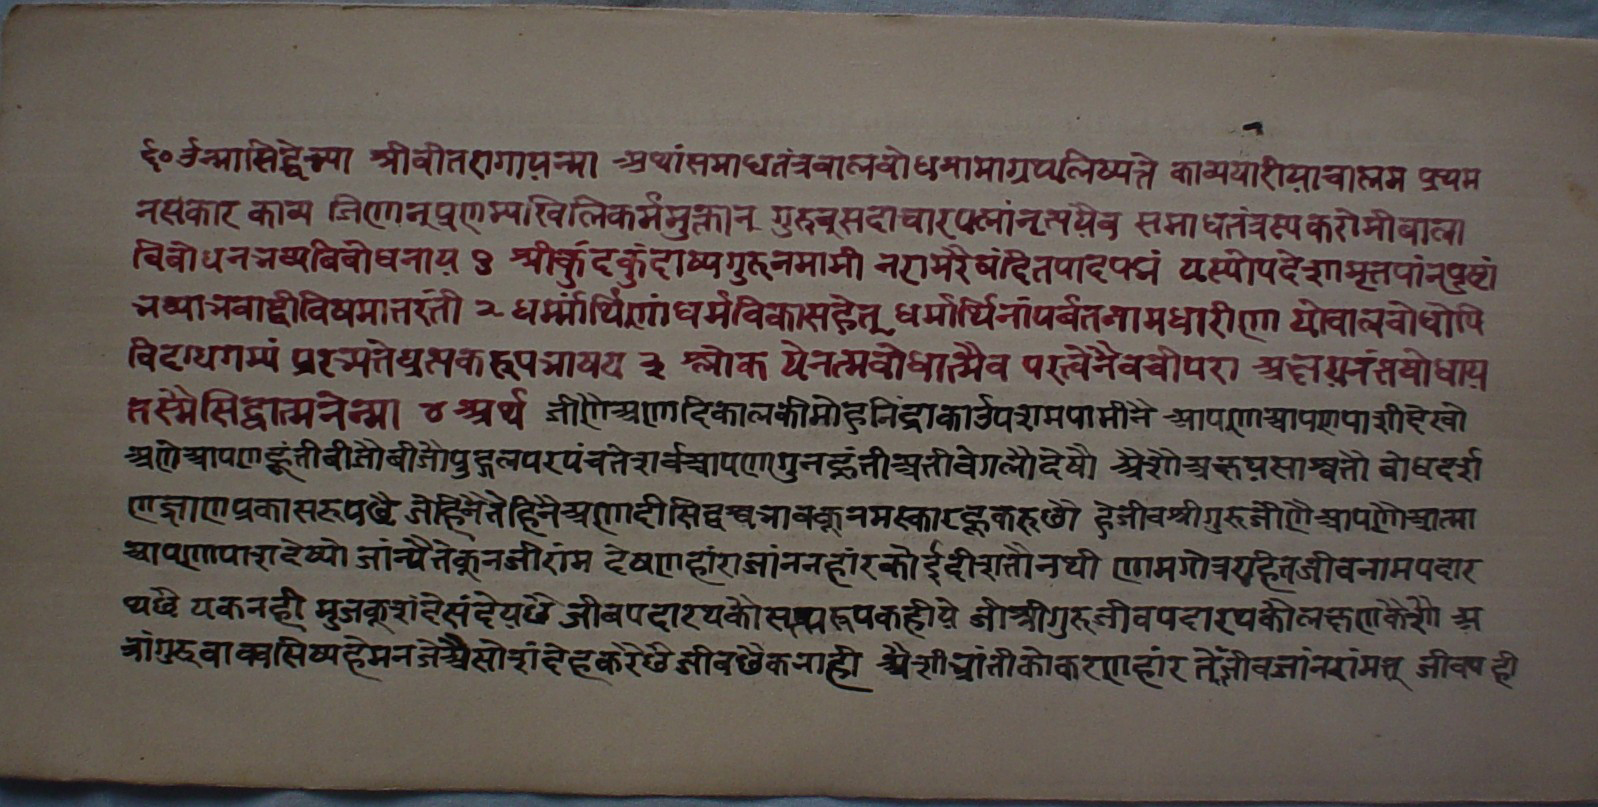 ६० उँन्मासिद्धेभ्या श्रीवीतरागायन्मा अथांसमाधतंत्रबालबोधनामाग्रप्यलिष्यत्ते काव्यचारीयाचालम प्रथम
नसकार काव्य जिणेन्प्रणम्याखिलिकर्ममुक्तान् गुरुन्सदाचारपत्नांनृतथैव समाधतंत्रस्यकरोमीबाला
विबोधनभव्यविबोधनाय १ श्रीकुंदकुंदाष्यगुरुनमामी नरामरैर्षंदितपादपद्मं यस्योपदेशामृतपांनपृष्टां
भव्याभवाद्वीविषमात्तरंती २ धर्म्मार्थिणांधर्मविकासहेतू धर्मार्थिनांपर्वतनामधारीणा योबालबोधोपि
विदाधगम्यं प्रारभ्मत्तेपुस्तकरूपभावय ३ श्लोक येनत्मबोधात्मैव परत्वेनैवचौपरा अक्षयानंतबोधाय
तस्मैसिद्धात्मनेन्मा ४ अर्थ जीणैअणदिकालकीमोहनिंद्राकाउपशमपामीनै आपणआपणपाशीदेखो
अणेआपणह्वंतीबीजौबीजौपुद्गलपरपंचतेशर्वआपणेगुनह्वंतीअतीवेगलौदेषौ अैशौअक्षयसास्वतौ बोधदर्श
णज्ञाणप्रकासरूपछै जेहिनैतेहिनैअणदीसिद्धश्वभावकूनमस्कारह्वकरुछौ हेजीवश्रीगुरुजीणैआपणैआत्मा
आपणपाशदेष्यो जांन्यैतेकूनजीरांम देषणहांराजांननहांरकोईदीशतौनथी णामगोत्ररहितजीवनामपदार
थछै यकनही मुजकूशंदेसंदेयछै जीवपदारथकौसरूपकहीये जीश्रीगुरुजीवपदारथकौलक्षणकैशौ अ
त्रांगुरुवाक्यसिष्यहेमनजेअैसोशंदेहकरैछैजीवछैकनाही अैशीभ्रांतीकोकरणहांर तेंजीवजांनरांमत् जीवपही